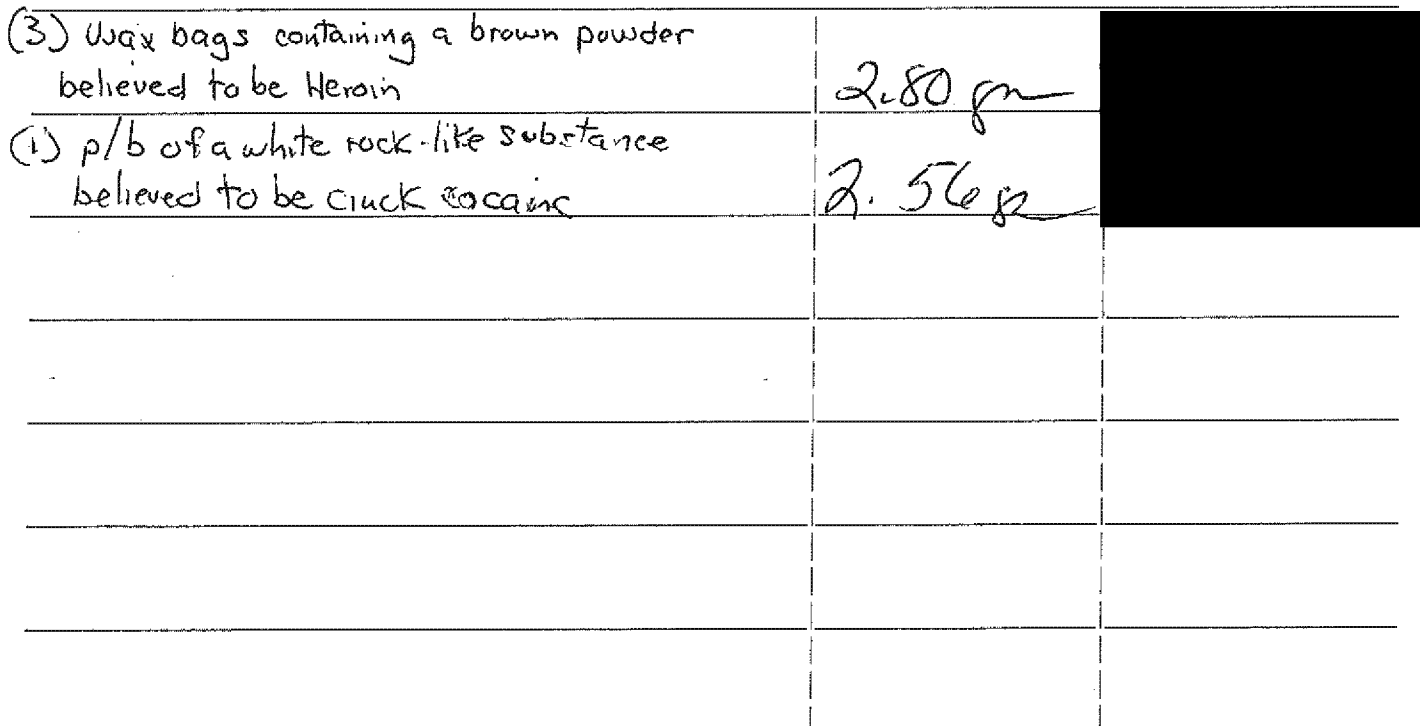 (3) Wax bags containing a brown powder
believed to be Heroin
2.80 gm
(1) p/b of a white rock-like substance
believed to be crack cocaine
2.56 gm